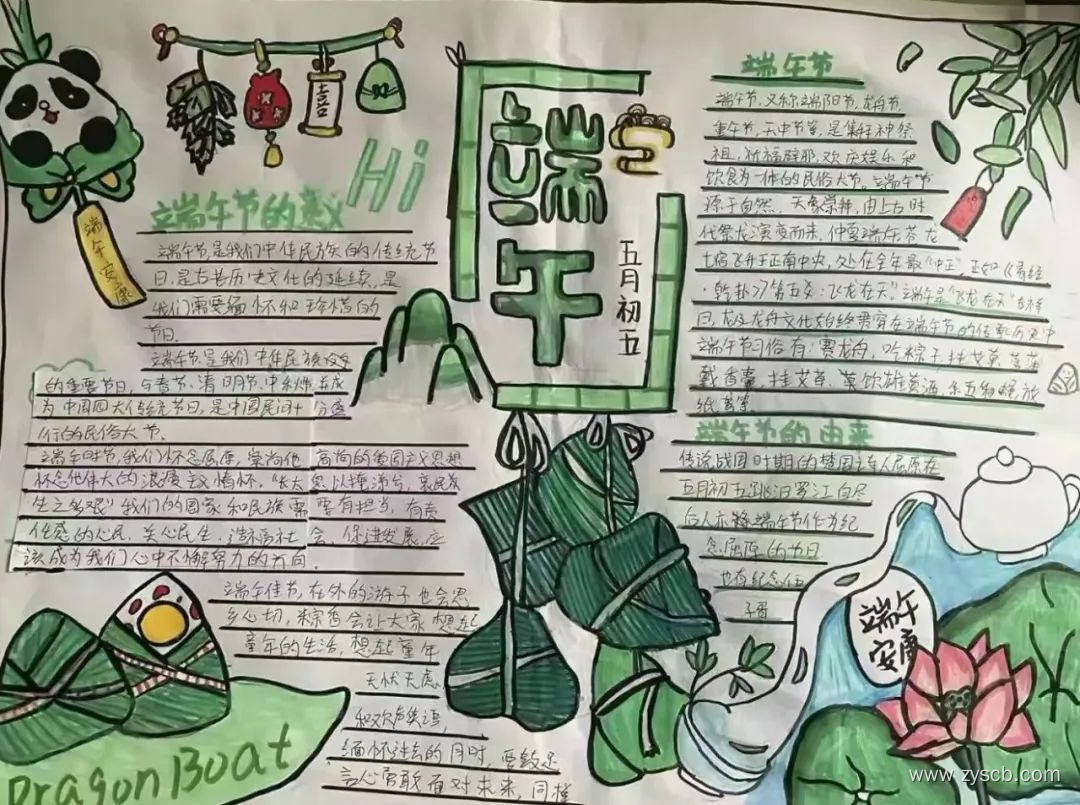 端午安康
喜
Hi
端午
五月初五
端午节的意义
端午节,是我们中华民族的传统节
日,是古老历史文化的延续,是
我们需要缅怀和珍惜的
节日.
端午节是我们中华民族
的重要节日,与春节、清明节、中秋并成
为中国四大传统节日,是中国民间十分盛
行的民俗大节.
端午时节,我们怀念屈原,崇尚他高尚的爱国主义思想
怀念他伟大的浪漫主义情怀,"长太息以掩涕兮,哀民
生之多艰"我们的国家和民族需要有担当,有责
任感的心民,关心民生,造福社会,促进发展,应
该成为我们心中不懈努力的方向.
端午佳节,在外的游子也会思
乡心切,粽香会让大家想起
童年的生活,想起童年
无忧无虑
和欢声笑语,
缅怀过去的同时,要鼓足
信心勇敢面对未来,同样
Dragon Boat
端午节
端午节,又称端阳节,龙舟节,
重午节,天中节等,是集拜神祭
祖,祈福辟邪,欢庆娱乐和
饮食为一体的民俗大节。端午节
源于自然,天象崇拜,由上古时
代祭龙演变而来,仲夏端午,苍龙
七宿飞升于正南中央,处在全年最"中正",正如《易经
·乾卦》第五爻:"飞龙在天"。端午是"飞龙在天"吉祥
日,龙及龙舟文化始终贯穿在端午节的传承历史中
端午节习俗有:赛龙舟,吃粽子,挂艾草,
戴香囊,挂艾草、饮雄黄酒,
纸鸢等
端午节的由来
传说战国时期的楚国诗人屈原在
五月初五跳汨罗江自尽
后人亦将端午节作为纪
念屈原的节日.
也有纪念伍
子胥
端午
安康
www.zyscb.com